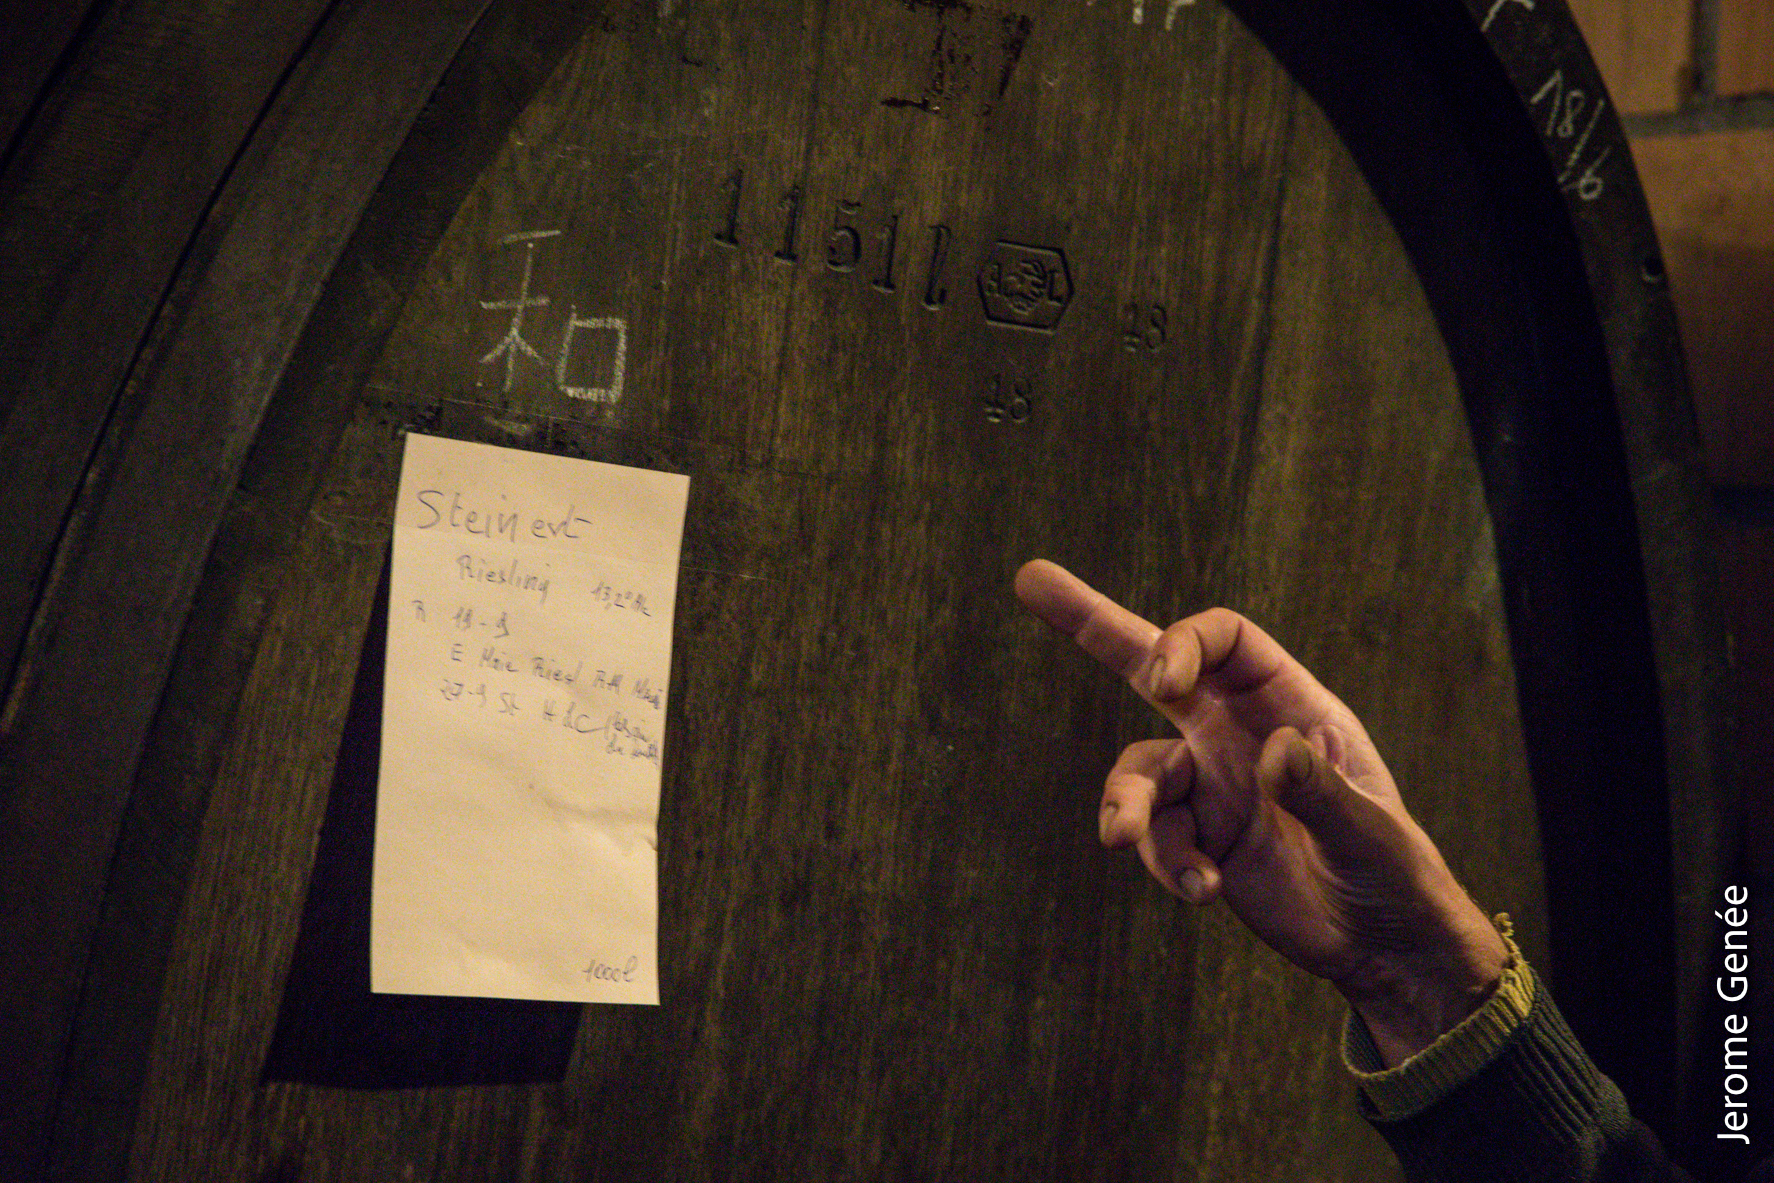 18/6
1151 l
A L
48
48
和
Steinert
Riesling 13,2° Alc
R 19-9
E Maie Riesl
27-9 St H d C
1000l
Jerome Genée